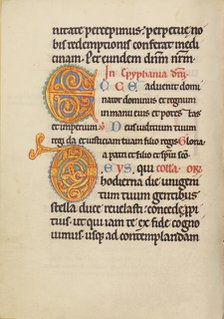 nitate percepimus. perpetue no
bis redemptionis conferat medi
cinam. Per eundem dnm nrm.
In epyphania dni
ECCE advenit domi
nator dominus et regnum
in manu eius et potestas
et imperium Ds iudicium tuum
regi da et iusticiam tuam filio regis Gloria
patri et filio et spu sco
DEUS, qui colla. or
hodierna die unigeni
tum tuum gentibus
stella duce revelasti concede ppi
tius. ut qui iam te ex fide cogno
vimus. usq ad contemplandam